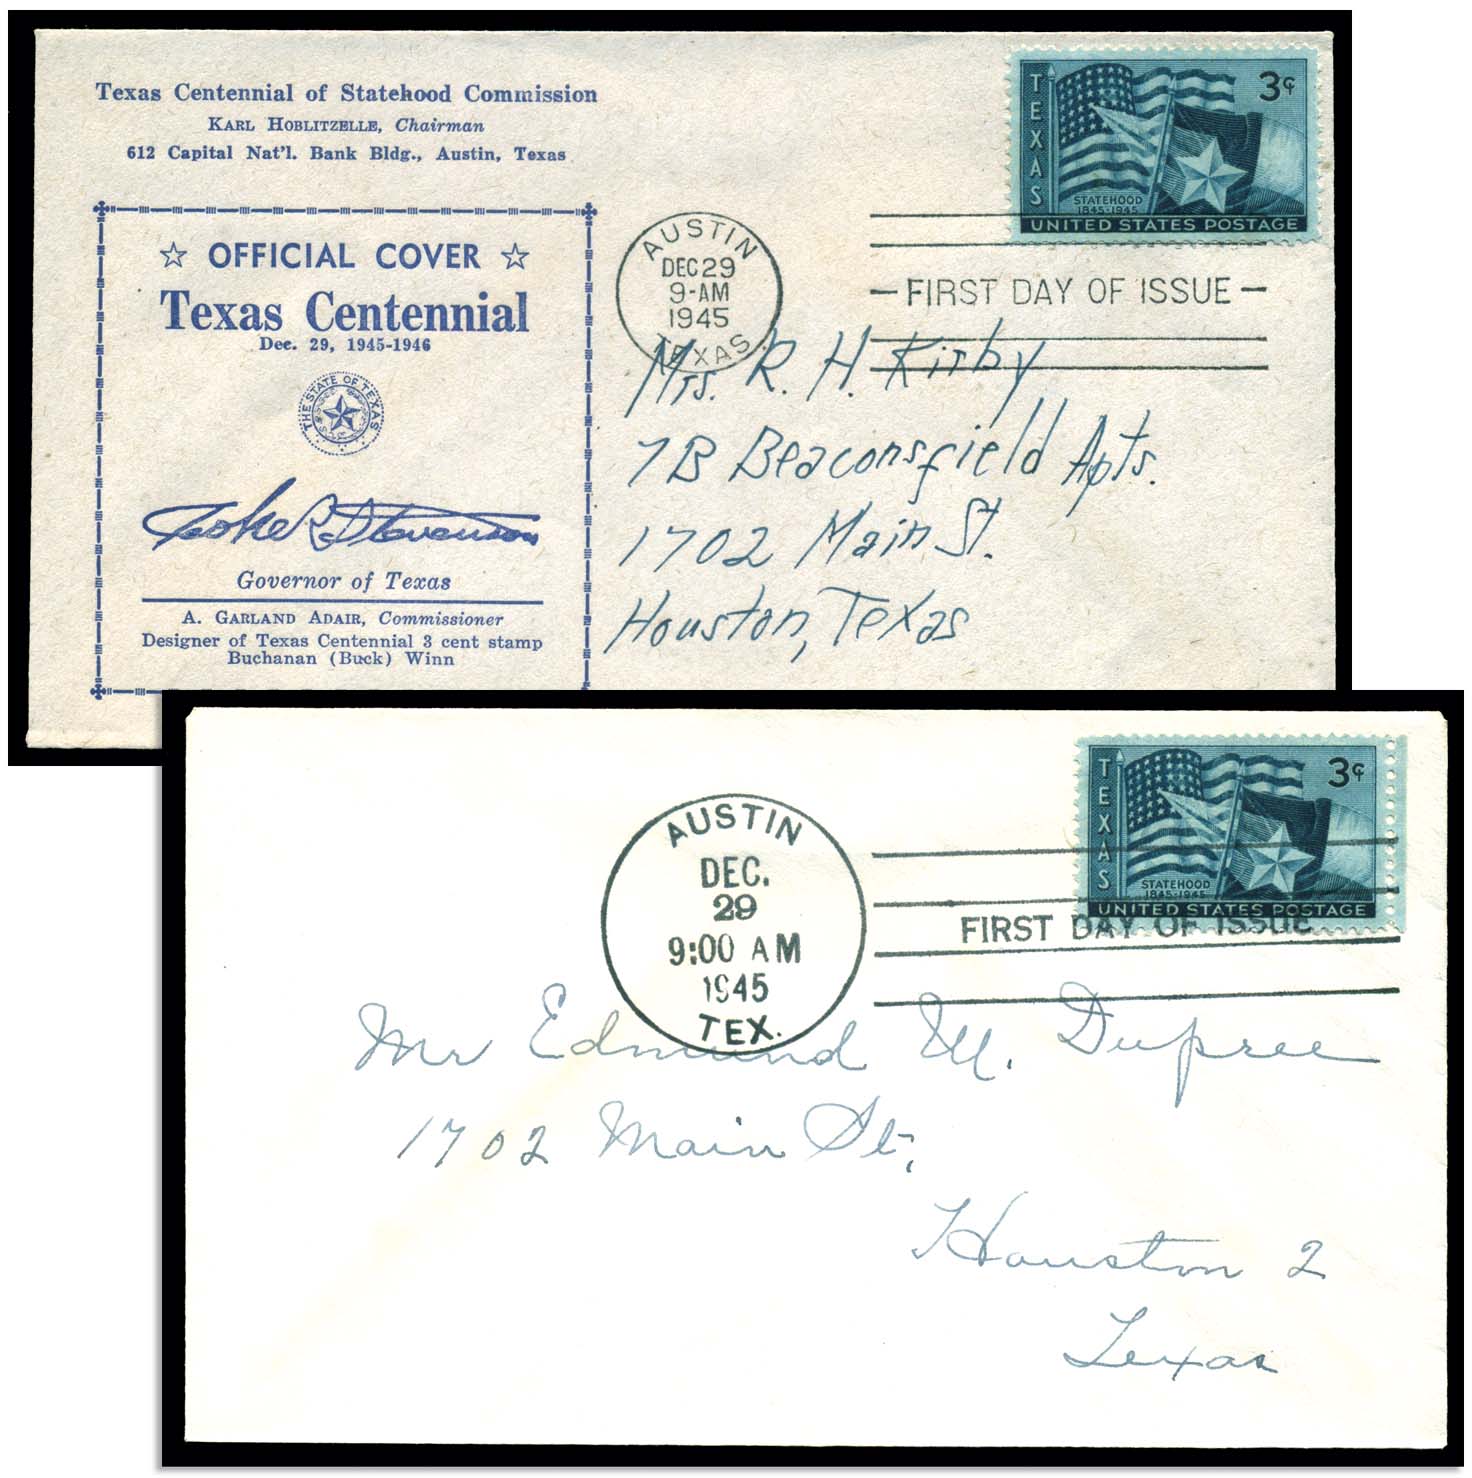 Texas Centennial of Statehood Commission
KARL HOBLITZELLE, Chairman
612 Capital Nat'l. Bank Bldg., Austin, Texas
☆ OFFICIAL COVER ☆
Texas Centennial
Dec. 29, 1945-1946
THE STATE OF TEXAS
Coke R. Stevenson
Governor of Texas
A. GARLAND ADAIR, Commissioner
Designer of Texas Centennial 3 cent stamp
Buchanan (Buck) Winn
TEXAS
3¢
STATEHOOD
1845-1945
UNITED STATES POSTAGE
AUSTIN
DEC 29
9-AM
1945
TEXAS.
— FIRST DAY OF ISSUE —
Mrs. R. H. Kirby
7B Beaconsfield Apts.
1702 Main St.
Houston, Texas
TEXAS
3¢
STATEHOOD
1845-1945
UNITED STATES POSTAGE
AUSTIN
DEC.
29
9:00 AM
1945
TEX.
FIRST DAY OF ISSUE
Mr Edmund M. Dupree
1702 Main St.
Houston 2
Texas